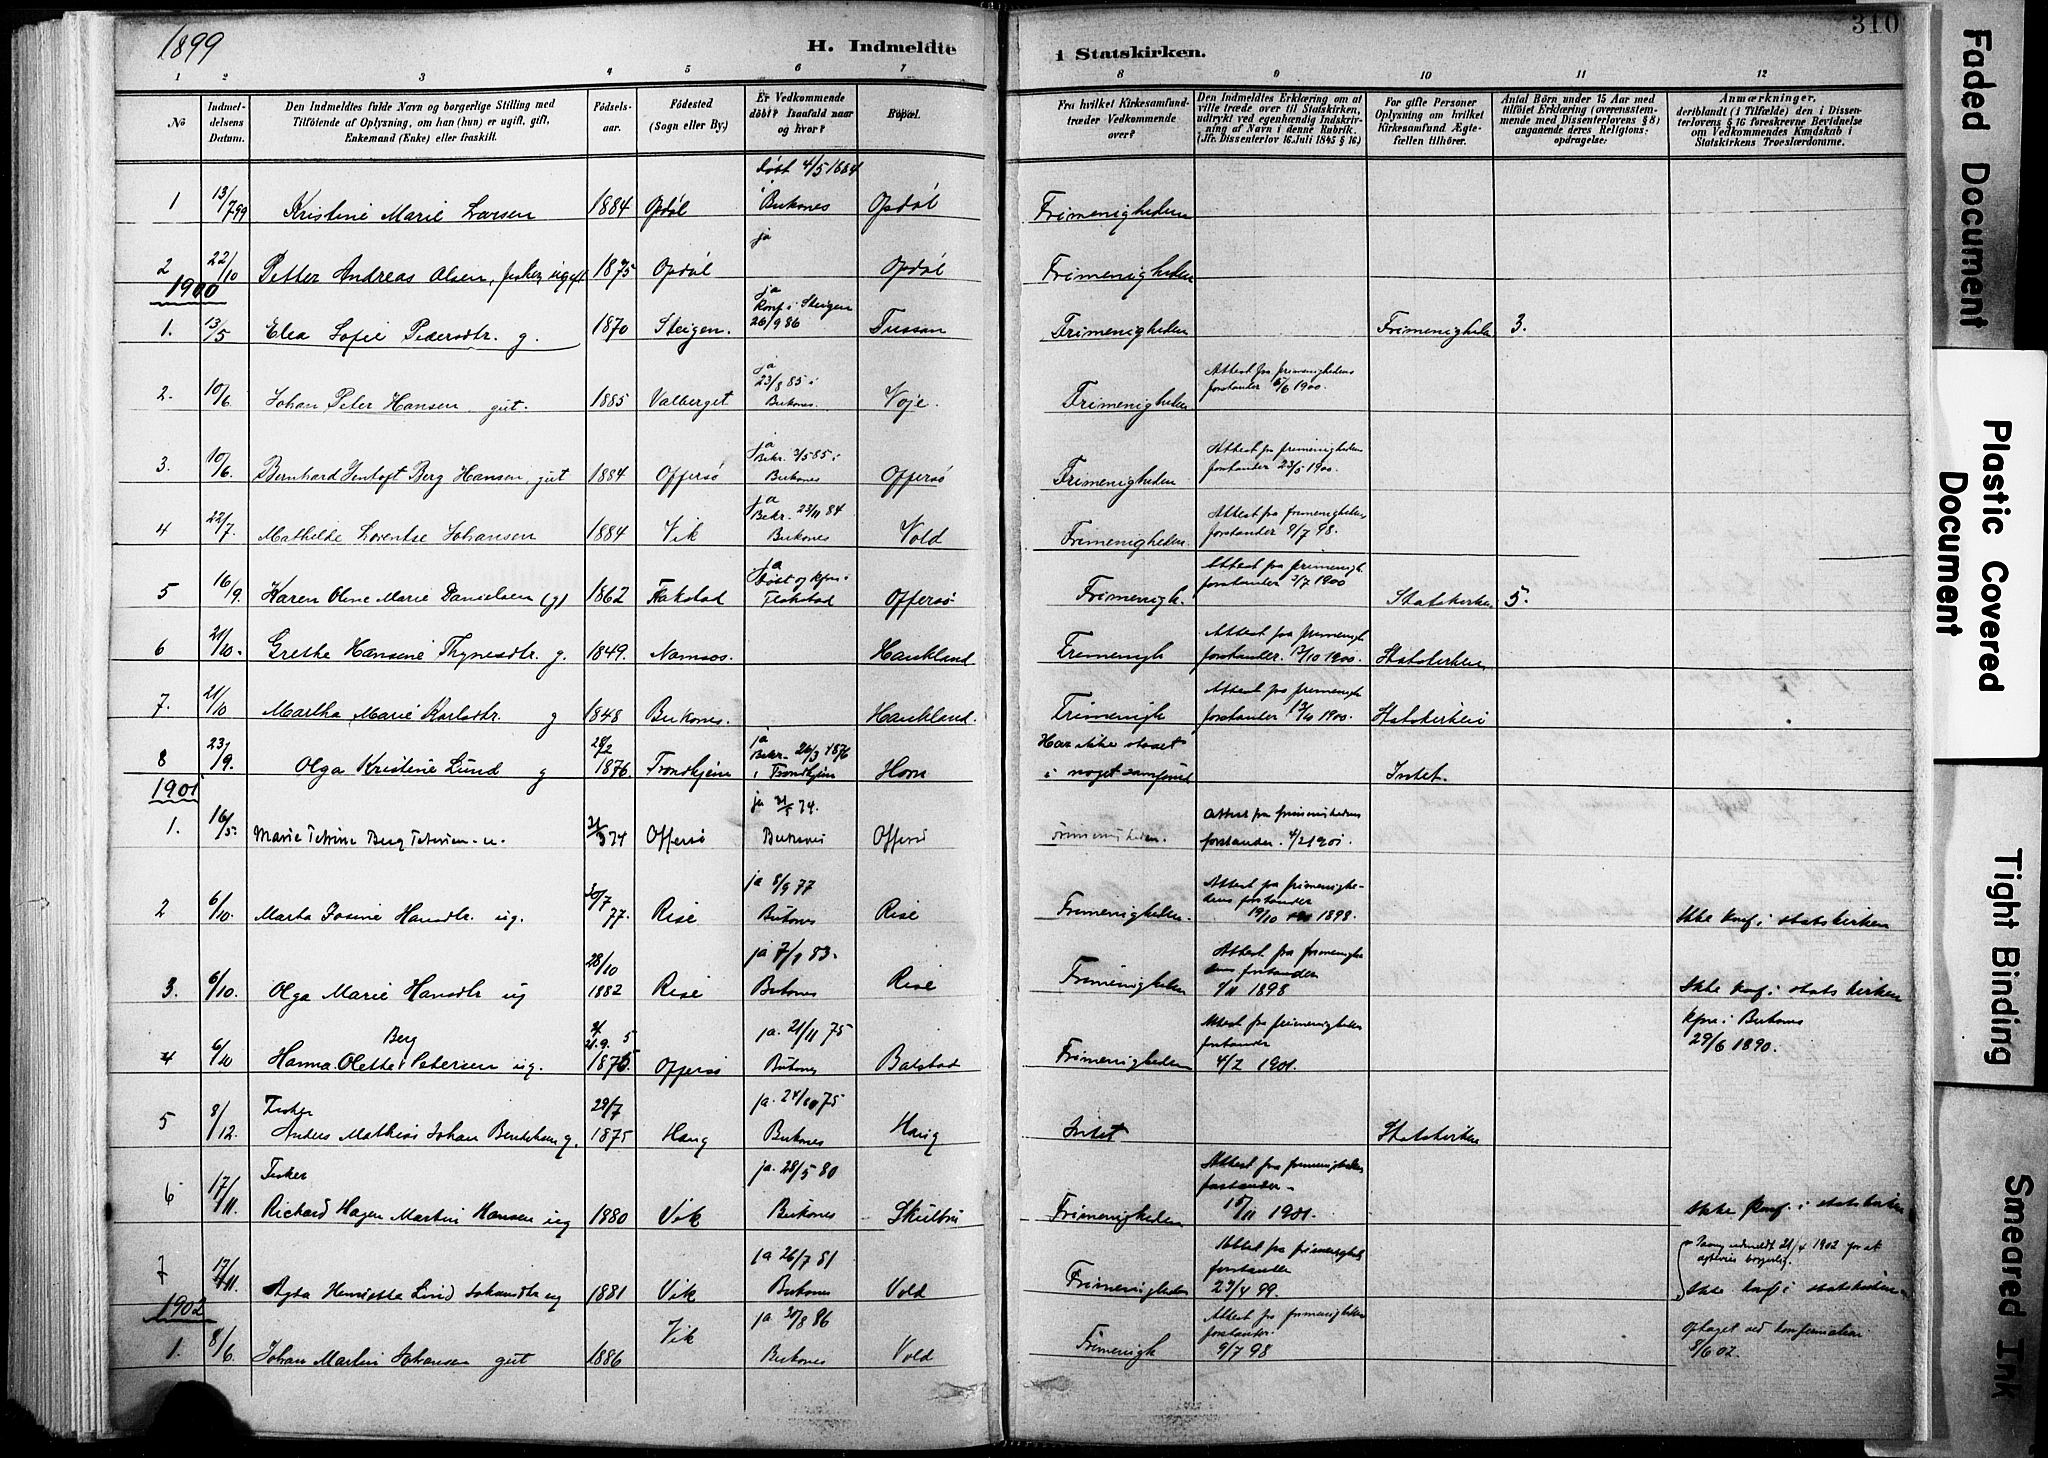 1899
H. Indmeldte
i Statskirken.
310
1 2 3 4 5 6 7 8 9 10 11 12
No
Indmeldelsens Datum.
Den Indmeldtes fulde Navn og borgerlige Stilling med Tilføiende af Oplysning, om han (hun) er ugift, gift, Enkemand (Enke) eller fraskilt.
Fødselsaar.
Fødested (Sogn eller By.)
Er Vedkommende døbt? Isaafald naar og hvor?
Bopæl.
Fra hvilket Kirkesamfund træder Vedkommende over?
Den Indmeldtes Erklæring om at ville træde over til Statskirken, udtrykt ved egenhændig Indskrivning af Navn i denne Rubrik. (Jfr. Dissenterlov 16 Juli 1845 § 16)
For gifte Personer Oplysning om hvilket Kirkesamfund Ægtefællen tilhører.
Antal Børn under 15 Aar med tilføiet Erklæring (overensstemmende med Dissenterlovens § 8) angaaende deres Religionsopdragelse.
Anmærkninger, deriblandt (i Tilfælde) den i Dissenterlovens § 16 foreskrevne Bevidnelse om Vedkommendes Kundskab i Statskirkens Troeslærdomme.
1 13/7 99 Kristine Marie Larsen 1884 Opdøl døbt 4/5 1884 i Buksnes Opdøl Frimenigheden
2 22/10 Petter Andreas Olsen, fisker, ugift 1875 Opdøl ja Opdøl Frimenigheden
1900
1. 13/5 Elea Sofie Pedersdtr. g. 1870 Steigen. ja Konf. i Steigen 26/9 86 Tussan Frimenigheden Frimenigheden 3.
2. 10/6. Johan Peter Hansen gut. 1885 Valberget ja 23/8 85 i Buksnes. Voje. Frimenigheden Attest fra frimenighedens forstander 6/6 1900.
3. 10/6. Bernhard Gentoft Berg Hansen gut 1884 Offersø ja Bekr. 3/5 85 i Buksnes Offersø Frimenigheden Attest fra frimenigheden forstander 23/5 1900.
4 22/7. Mathilde Lorentse Johansen 1884 Vik ja Bekr. 23/11 84 Buksnes Vold Frimenigheden. Attest fra frimenighedens forstander 9/7 98.
5 16/9. Karen Oline Marie Danielsen (g) 1862 Flakstad ja Døbt og kfm. i Flakstad Offersø Frimenigh. Attest fra frimenigh. forstander 3/7 1900 Statskirken 5.
6 21/10. Grethe Hansine Thynesdtr. g. 1849. Namsos. Haukland Frimenigh Attest fra frimenigh forstander. 13/10 1900. Statskirken
7. 21/10 Martha Marie Karlsdtr. g 1848 Buksnes. Haukland. Frimenigh Attest fra frimenigh forstander 1900. Statskirken
8 23/9. Olga Kristine Lund g 28/2 1876. Trondhjem ja Bekr. 26/3 1876 i Trondhjem Horn Har ikke staaet i noget samfund Intet.
1901
1. 16/5. Marie Petrine Berg Petersen. u. 74 Offersø ja 74. Buksnes Offersø Frimenigheden. Attest fra frimenighedens forstander. 4/2 1901.
2 6/10. Marta Josine Hansdtr. ug. 30/7 77. Rise ja 8/9 77 Buksnes Rise Frimenigheden. Attest fra frimenighedens forstander 19/10 1898. Ikke konf. i statskirken
3. 6/10. Olga Marie Hansdtr ug 28/10 1882 Rise ja 7/1 83. Buksnes Rise Frimenigheden Attest fra frimenighedens forstander 1/11 1898 Ikke konf. i statskirken
4 6/10 Hanna Olette Berg Petersen ug. 21.9. 1875 Offersø ja. 21/11 75 Buksnes Balstad Frimenigheden Attest fra frimenigheden forstander 4/2 1901. kfm. i Buksnes 29/6 1890.
5 8/12. Fisker Anders Mathias Johan Bentsen g. 29/7 1875 Haug ja. 24/10 75 Buksnes Haug Intet Statskirken
6 17/11. Fisker Richard Hagen Martin Hansen ug 1880 Vik ja. 28/5 80 Buksnes Skulbru Frimenigheden Attest fra frimenighedens forstander. 15/11 1901. Ikke konf. i statskirken
7 17/11. Agta Henriette Lind Johansdtr ug 1881 Vik ja 26/7 81 Buksnes Vold Frimenigheden Attest fra frimenigheds forstander 23/4 99. Paany udmeldt 21/4 1902 for at ægtevies borgerlig. Ikke konf. i statskirken
1902
1. 8/6. Johan Martin Johansen gut 1886 Vik ja 30/8 86 Buksnes Vold Frimenigh Attest fra frimenigheden forstander. 9/7 98 Optaget ved konfirmation 8/6 02.
Faded Document
Plastic Covered Document
Tight Binding
Smeared Ink